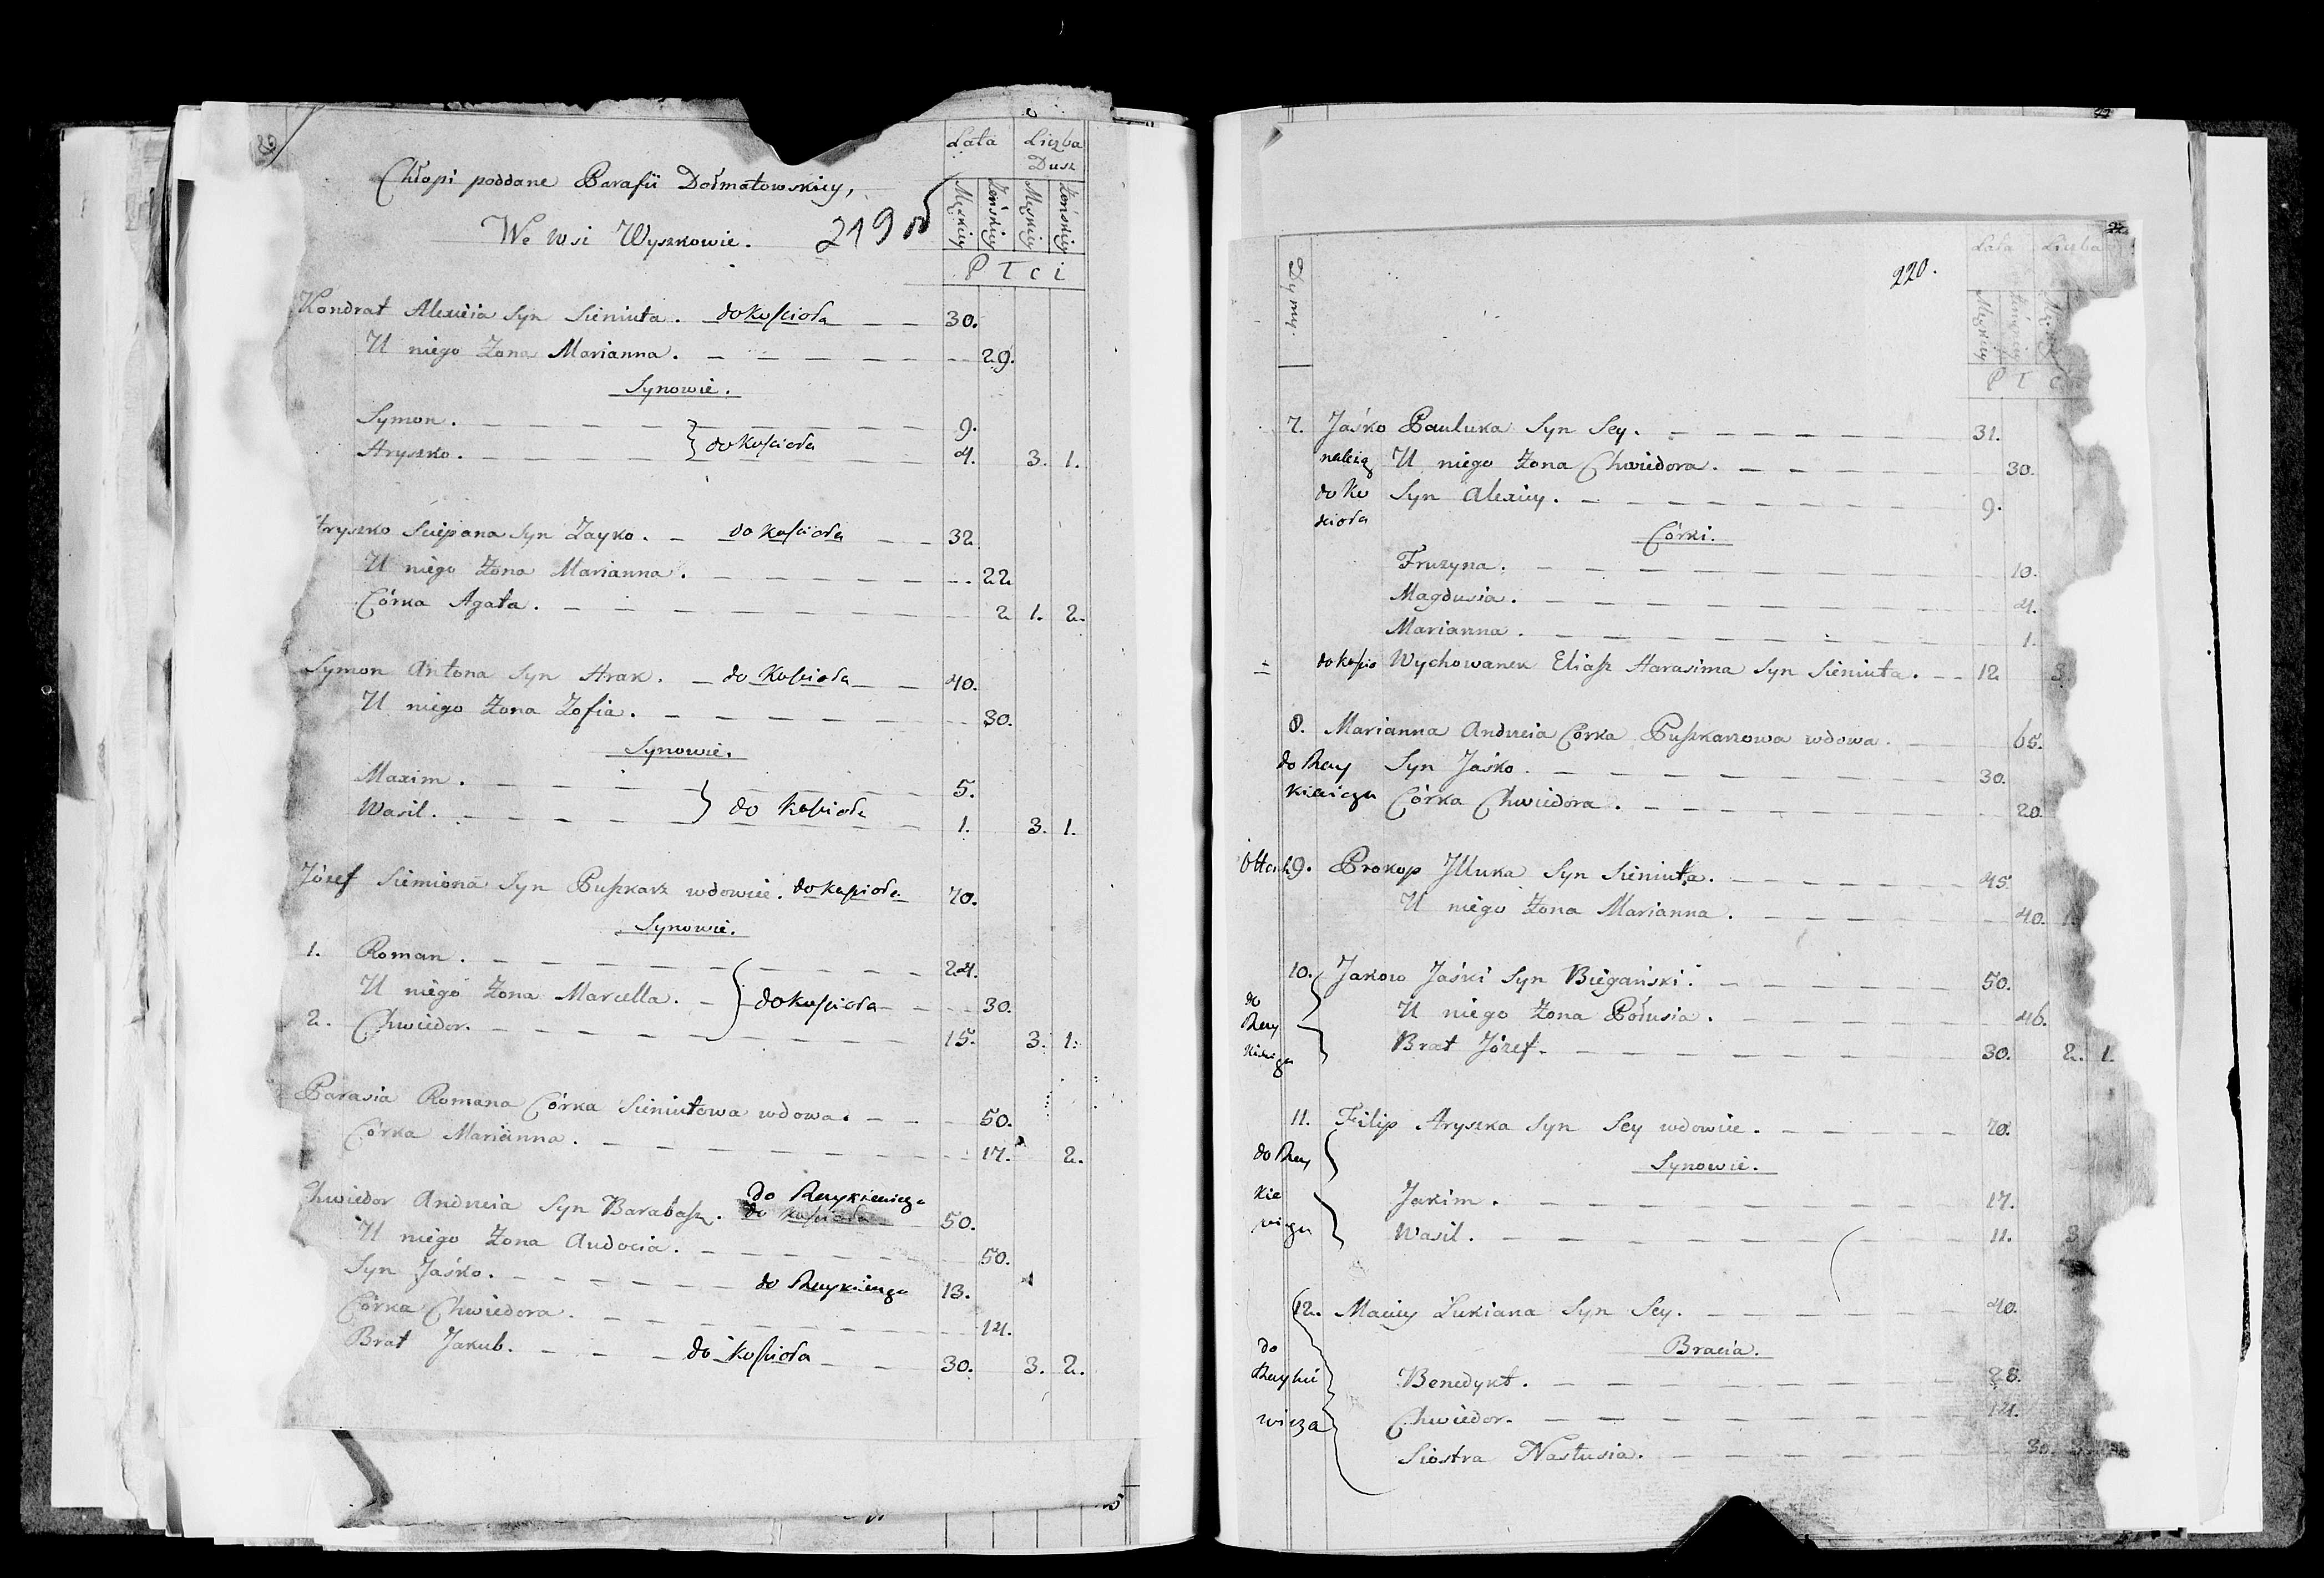 Lata Liczba
Dusz
Chłopi poddane Parafii Dołmatowskiey,
Męskiey Żeńskiey Męskiey Żeńskiey
We wsi Wyszkowie. 219
P T C I
Kondrat Alexieia Syn Sieniuta. do Kościoła 30.
U niego Żona Marianna. 29.
Synowie.
Symon. 9.
Hryszko. do Kościoła 4. 3. 1.
Hryszko Sciepana Syn Zayko. do Kościoła 32
U niego Żona Marianna. 22
Córka Agata. 2 1. 2.
Symon Antona Syn Hrak. do Kościoła 40.
U niego Żona Zofia. 30.
Synowie.
Maxim. 5.
Wasil. do Kościoła 1. 3. 1.
Józef Siemiona Syn Puszkarz wdowiec. do Kościoła 70.
Synowie.
1. Roman. 24.
U niego Żona Marcella. do Kościoła 30.
2. Chwiedor. 15. 3. 1.
Parasia Romana Córka Sieniutowa wdowa. 50.
Córka Marianna. 17. 2.
do Reykiewicza
Chwiedor Andreia Syn Barabasz. do Kościoła 50.
U niego Żona Audocia. 50.
Syn Jaśko. do Reykiewicza 13.
Córka Chwiedora. 14.
Brat Jakub. do Kościoła 30. 3. 2.
Dymy.
220.
Lata Liczba
Męskiey Żeńskiey
P T C
7. Jaśko Pauluka Syn Sey. 31.
należą U niego Żona Chwiedora. 30.
do Ko Syn Alexiey. 9.
scioła
Córki.
Fruzyna. 10.
Magdusia. 4.
Marianna. 1.
do Kościo Wychowanek Eliasz Harasima Syn Sieniuta. 12 3
8. Marianna Andreia Córka Puszkarzowa wdowa. 65.
do Rey Syn Jaśko. 30.
kiewicza Córka Chwiedora. 20.
9. Prokop Illuka Syn Sieniuta. 45.
U niego Żona Marianna. 40. 1.
10. Jakow Jaśki Syn Biegański. 50.
do
U niego Żona Połusia. 46.
Rey
Brat Józef. 30. 2. 1.
kiewicza
11. Filip Hryszka Syn Sey wdowiec. 70.
do Rey
Synowie.
kie
Jakim. 17.
wicza Wasil. 11. 3
12. Maciey Łukiana Syn Sey. 40.
do
Bracia.
Reykie Benedykt. 28.
wicza Chwiedor. 14.
Siostra Nastusia. 30.